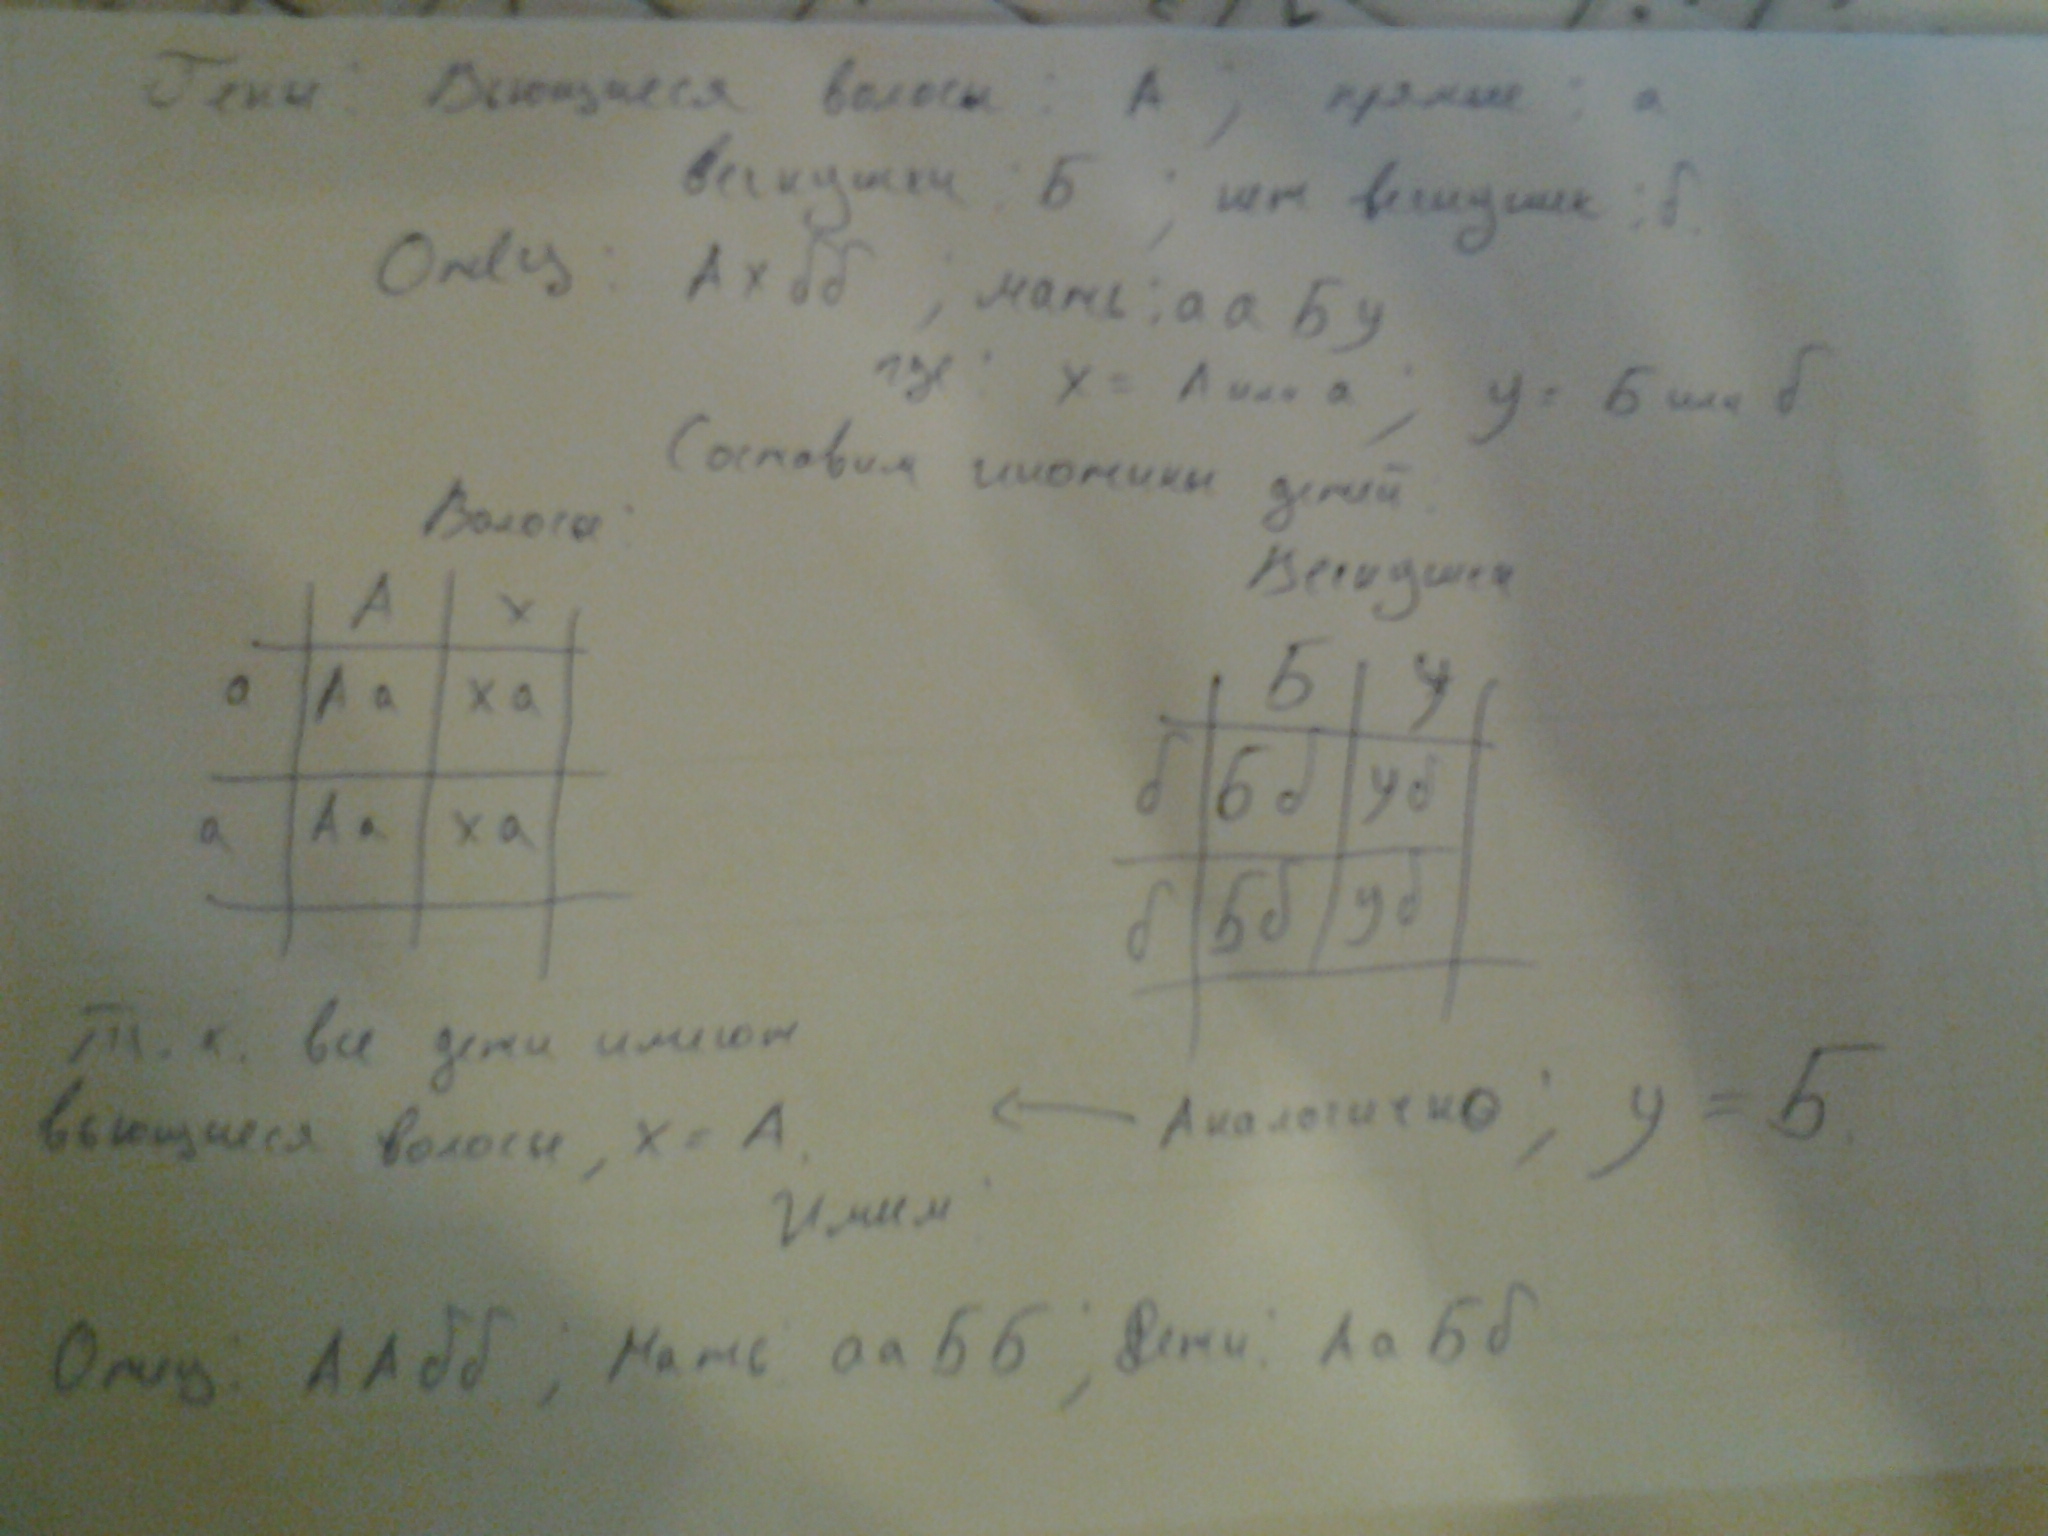 Гены: Вьющиеся волосы: А; прямые: а
веснушки: Б; нет веснушек: б.
Отец: Ахбб; мать: ааБу
где: х = А или а; у = Б или б
Составим генотипы детей:
Волосы:
Веснушки
А х
а Аа ха
а Аа ха
Б у
б Бб уб
б Бб уб
Т.к. все дети имеют
вьющиеся волосы, х = А.
← Аналогично; у = Б.
Имеем:
Отец: ААбб; Мать: ааББ; Дети: АаБб